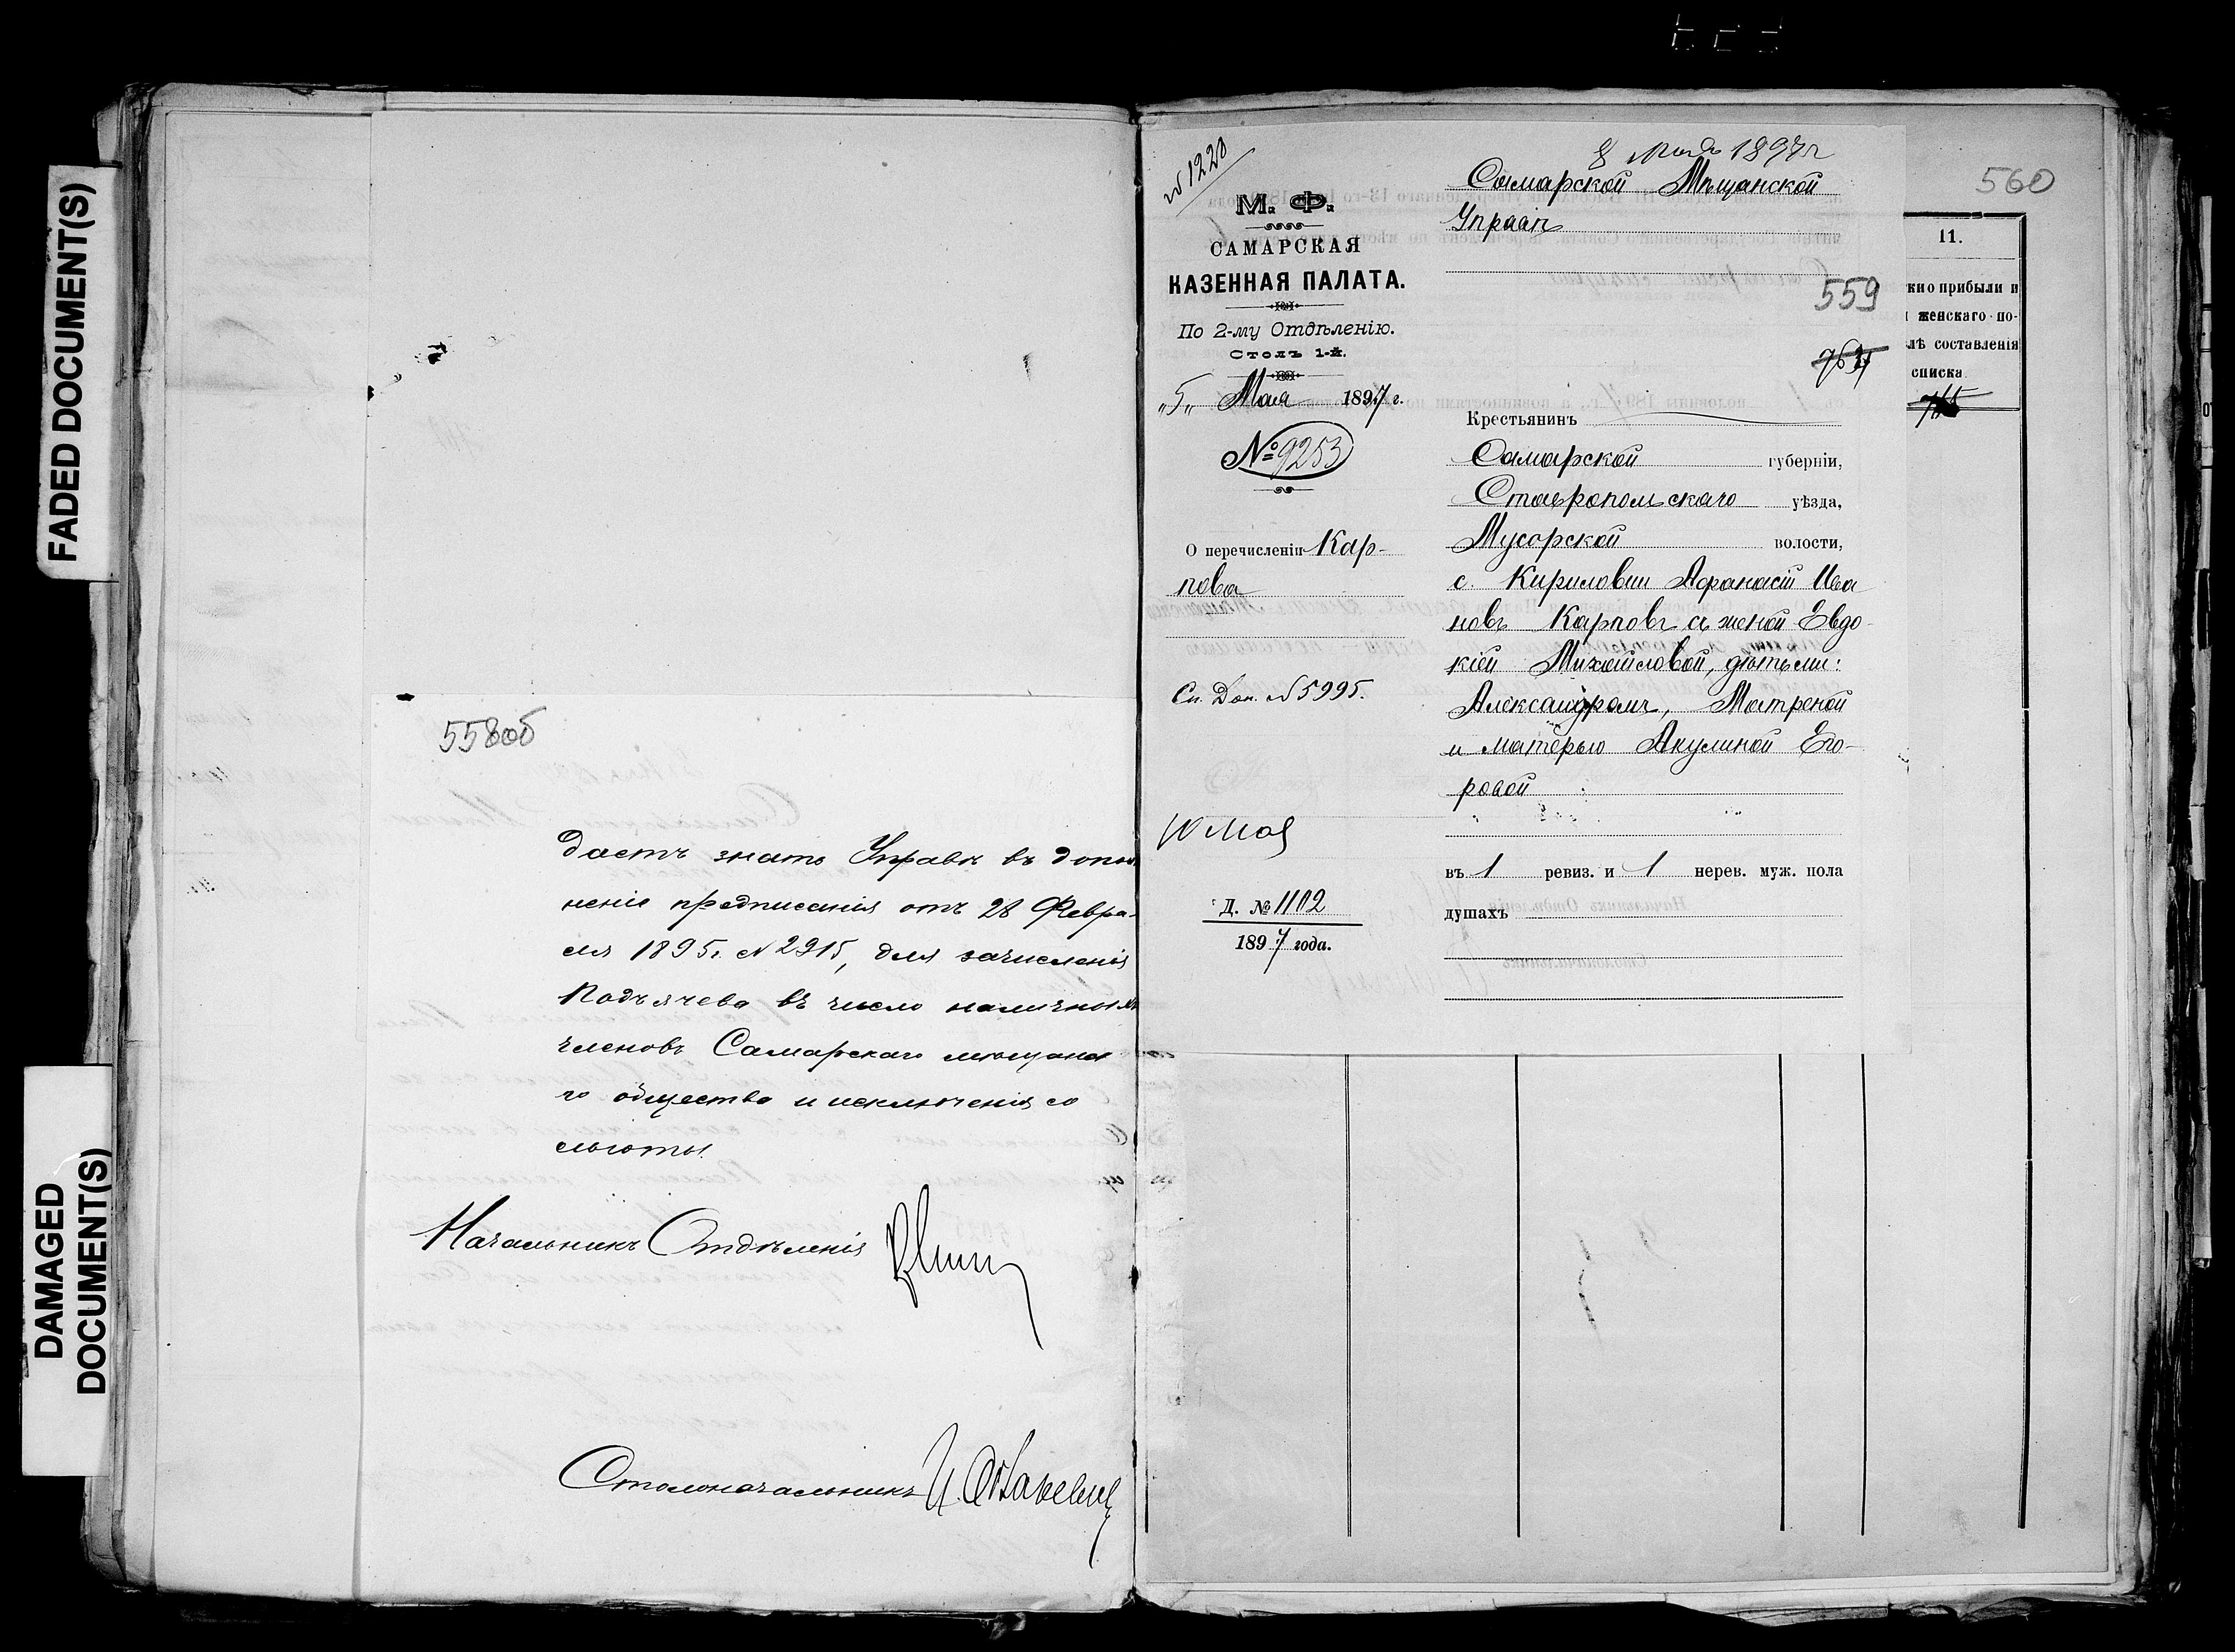 FADED DOCUMENT(S)
DAMAGED
DOCUMENT(S)
558об
дастъ знать Управѣ въ допол
неніе предписанія отъ 28 Февра-
ля 1895г. № 2915, для зачисленія
Подъячева въ число наличныхъ
членовъ Самарскаго мѣщанска
го общества и исключенія со
льготы.
Начальникъ Отдѣленія
Столоначальникъ
№ 1220
М. Ф.
САМАРСКАЯ
КАЗЕННАЯ ПАЛАТА.
По 2-му Отдѣленію.
Столъ 1-й.
„5„ Мая 1897 г.
№ 9253
О перечисленіи Кар-
пова
Сп. Доп. № 5995.
10 мая
Д. № 1102
1897 года.
8 Мая 1897г
Самарской Мѣщанской
Управѣ
559
Крестьянинъ
Самарской губерніи,
Ставропольскаго уѣзда,
Мусорской волости,
с. Кириловки Афанасій Ива
новъ Карповъ съ женой Евдо-
кіей Михайловой, дѣтьми:
Александромъ, Матреной
и матерью Акулиной Его-
ровой
въ 1 ревиз. и 1 нерев. муж. пола
душахъ
560
11.
кно прибыли и
женскаго по-
лѣ составленія
списка